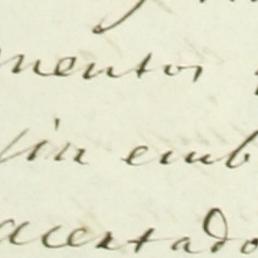 mentos
sin emb
acertado